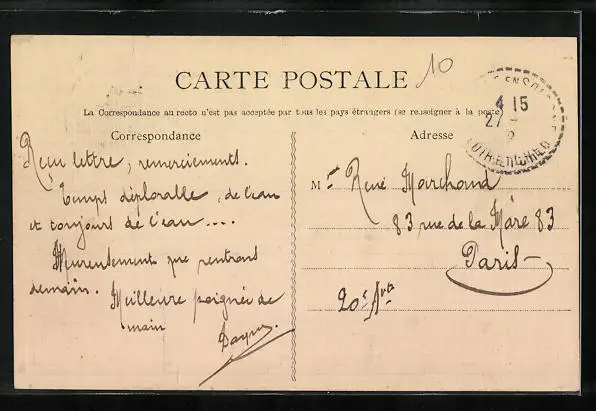 10
CARTE POSTALE
La Correspondance au recto n'est pas acceptée par tous les pays étrangers (se renseigner à la poste)
Correspondance
Adresse
4 15
27
LOIR-ET-CHER
Reçu lettre, remerciements.
Temps déplorable, de l'eau
et toujours de l'eau....
Heureusement que rentrons
demain. Meilleure poignée de
main
Mr René Marchand
83 rue de la Mare 83
Paris
20e Arrt